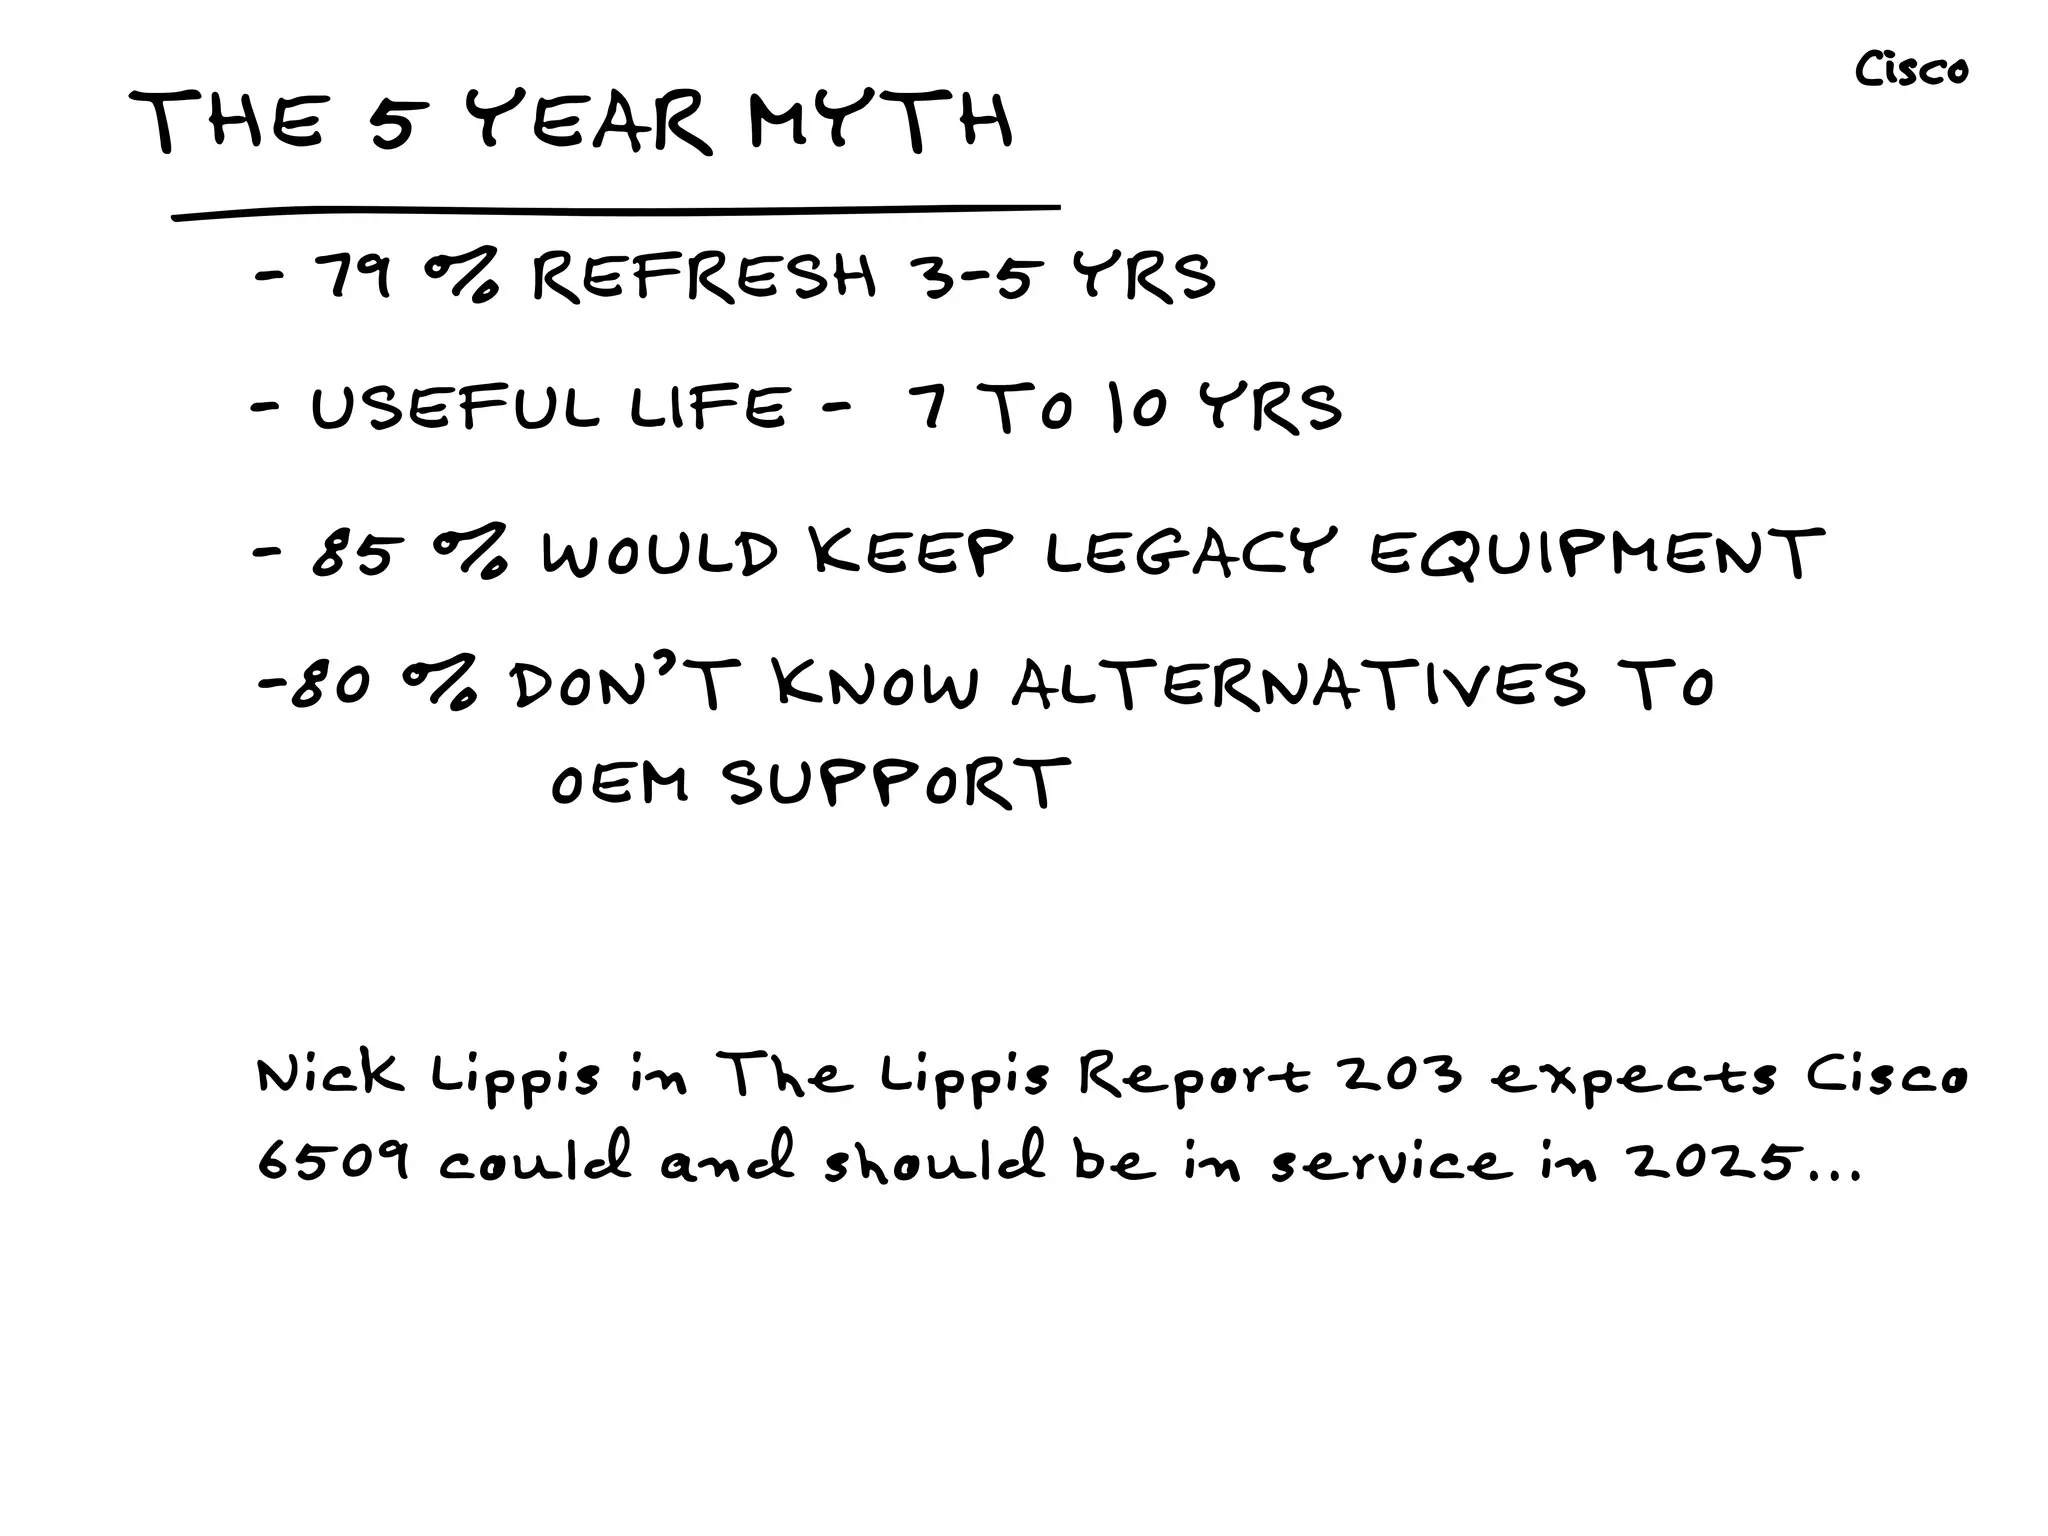 Cisco
THE 5 YEAR MYTH
- 79 % REFRESH 3-5 YRS
- USEFUL LIFE - 7 TO 10 YRS
- 85 % WOULD KEEP LEGACY EQUIPMENT
-80 % DON'T KNOW ALTERNATIVES TO
OEM SUPPORT
Nick Lippis in The Lippis Report 203 expects Cisco
6509 could and should be in service in 2025...